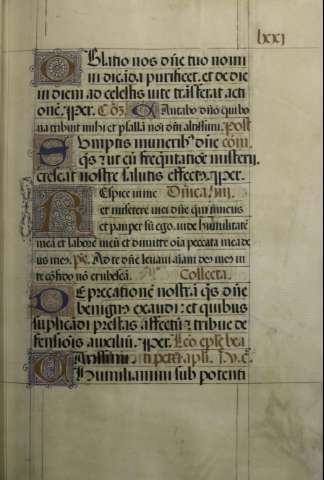 lxxj
Oblatio nos dñe tuo nomi
ni dicãda purificet. et de die
in diem ad celestis uite trãsferat acti
onẽ. per. Cõ. Cantabo dño qui bo
na tribuit mihi et psallã noĩ dñi altissimi. post
Sumptis muneribus dñe cõm.
qs ut cũ frequẽtatiõe misterij.
crescat nostre salutis effectus. per.
Respice in me Dñica .iij.
et miserere mei dñe qm̃ unicus
et pauper sũ ego. uide humilitatẽ
meã et laborẽ meũ et dimitte oĩa peccata mea de
us meus. ps. Ad te dñe leuaui aĩam meã deus meus in
te cõfido nõ erubescã. Collecta.
Deprecationẽ nostrã qs dñe
benignus exaudi: et quibus
supplicãdi prestas affectũ: tribue de
fensiõis auxiliũ. per. Lcõ eple bea
tissimi petri apli. .v. c.
Humiliamini sub potenti